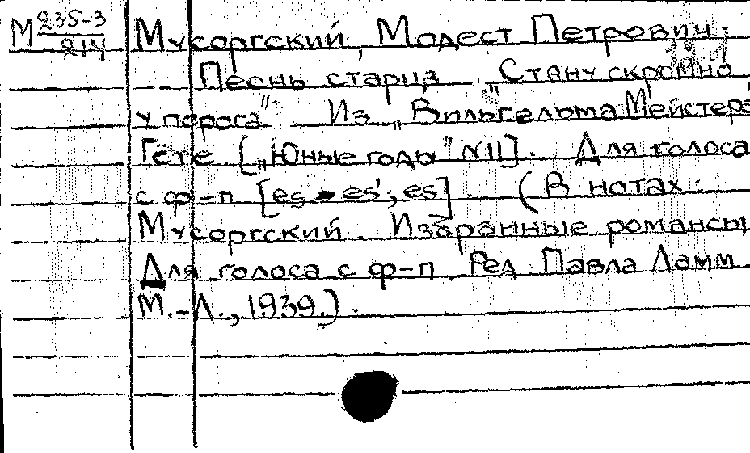 М 235-3 Мусоргский, Модест Петрович.
214 Песнь старца "Стану скромно
у порога". Из "Вильгельма Мейстера"
Гете ["Юные годы" N11]. Для голоса
с ф-п [es - es'; es] (В нотах:
Мусоргский. Избранные романсы
Для голоса с ф-п. Ред. Павла Ламм
М.-Л., 1939.).